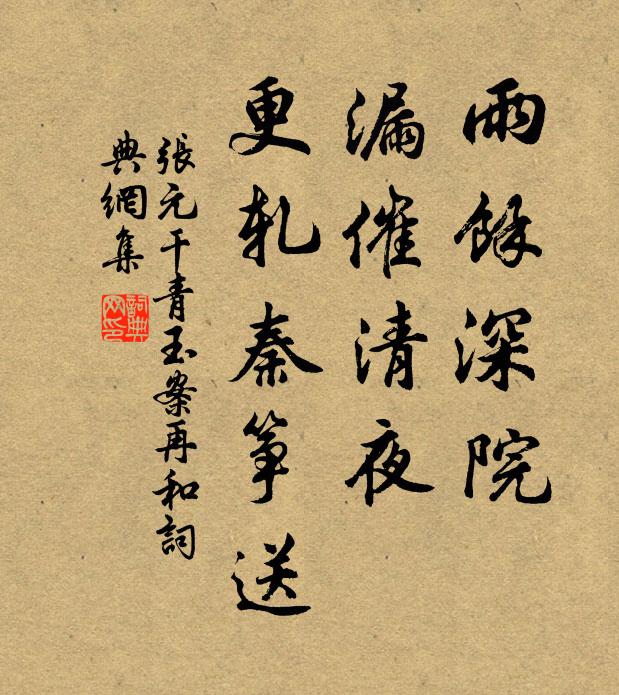 雨餘深院
漏催清夜
更軋秦箏送
張元干青玉案再和詞
典網集
詞典
网印